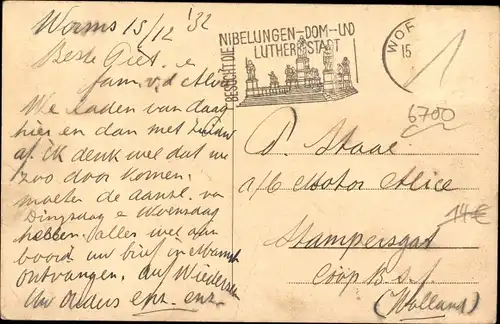 Worms 15/12 '32
Beste Piet. e
fam. v.d.
We laden van daag
hier en dan met
af. ik denk wel dat we
zoo door komen.
moeten de aanzl. va
Dingsdag e Woensdag
hebben. Palles wel aan
boord uw brief in
ontvangen. Auf Wiedersen
Uw Ouders enz. enz.
BESUCHT DIE
NIBELUNGEN-DOM-UND
LUTHERSTADT
WOR
15
6700
P. Staal
a/b Motor Alice
14€
Stampersgat
Coöp B.s.f
(Holland)